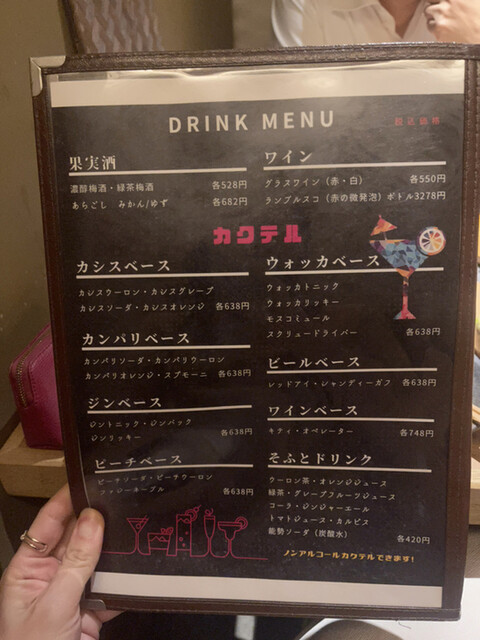 DRINK MENU
税込価格
果実酒
濃醇梅酒・緑茶梅酒 各528円
あらごし みかん/ゆず 各682円
ワイン
グラスワイン（赤・白） 各550円
ランブルスコ（赤の微発泡）ボトル3278円
カクテル
カシスベース
カシスウーロン・カシスグレープ
カシスソーダ・カシスオレンジ 各638円
カンパリベース
カンパリソーダ・カンパリウーロン
カンパリオレンジ・スプモーニ 各638円
ジンベース
ジントニック・ジンバック
ジンリッキー 各638円
ピーチベース
ピーチソーダ・ピーチウーロン
ファジーネーブル 各638円
ウォッカベース
ウォッカトニック
ウォッカリッキー
モスコミュール
スクリュードライバー 各638円
ビールベース
レッドアイ・シャンディーガフ 各638円
ワインベース
キティ・オペレーター 各748円
そふとドリンク
ウーロン茶・オレンジジュース
緑茶・グレープフルーツジュース
コーラ・ジンジャーエール
トマトジュース・カルピス
能勢ソーダ（炭酸水） 各420円
ノンアルコールカクテルできます!